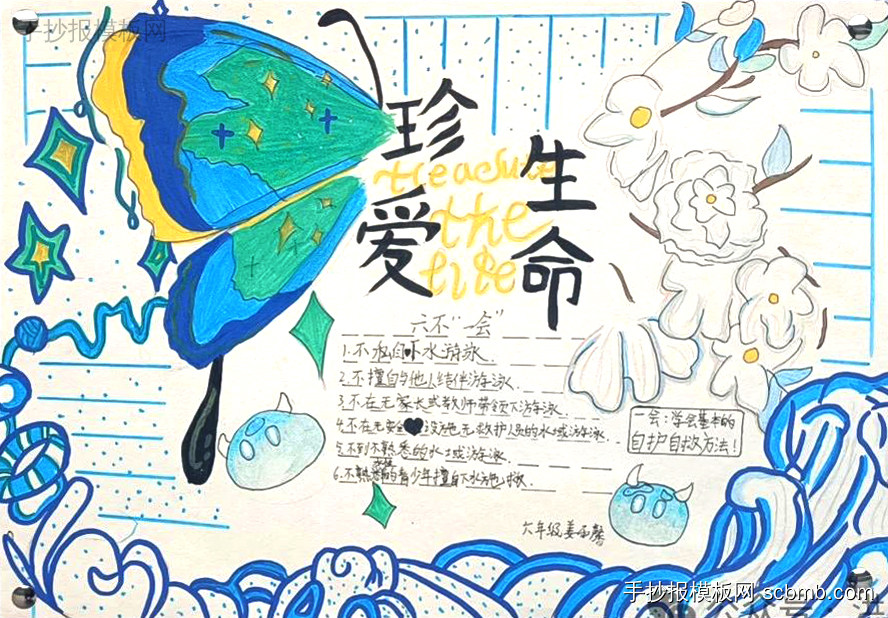 手抄报模板网
珍
爱
生
命
treasure
the
life
六不"一会"
1.不私自下水游泳.
2.不擅自与他人结伴游泳.
3.不在无家长或教师带领下游泳.
4.不在无安全设施无救护人员的水域游泳.
5.不到不熟悉的水域游泳.
6.不熟悉水性的青少年擅自下水施救.
一会:学会基本的
自护自救方法!
六年级姜
手抄报模板网 scbmb.com
公众号